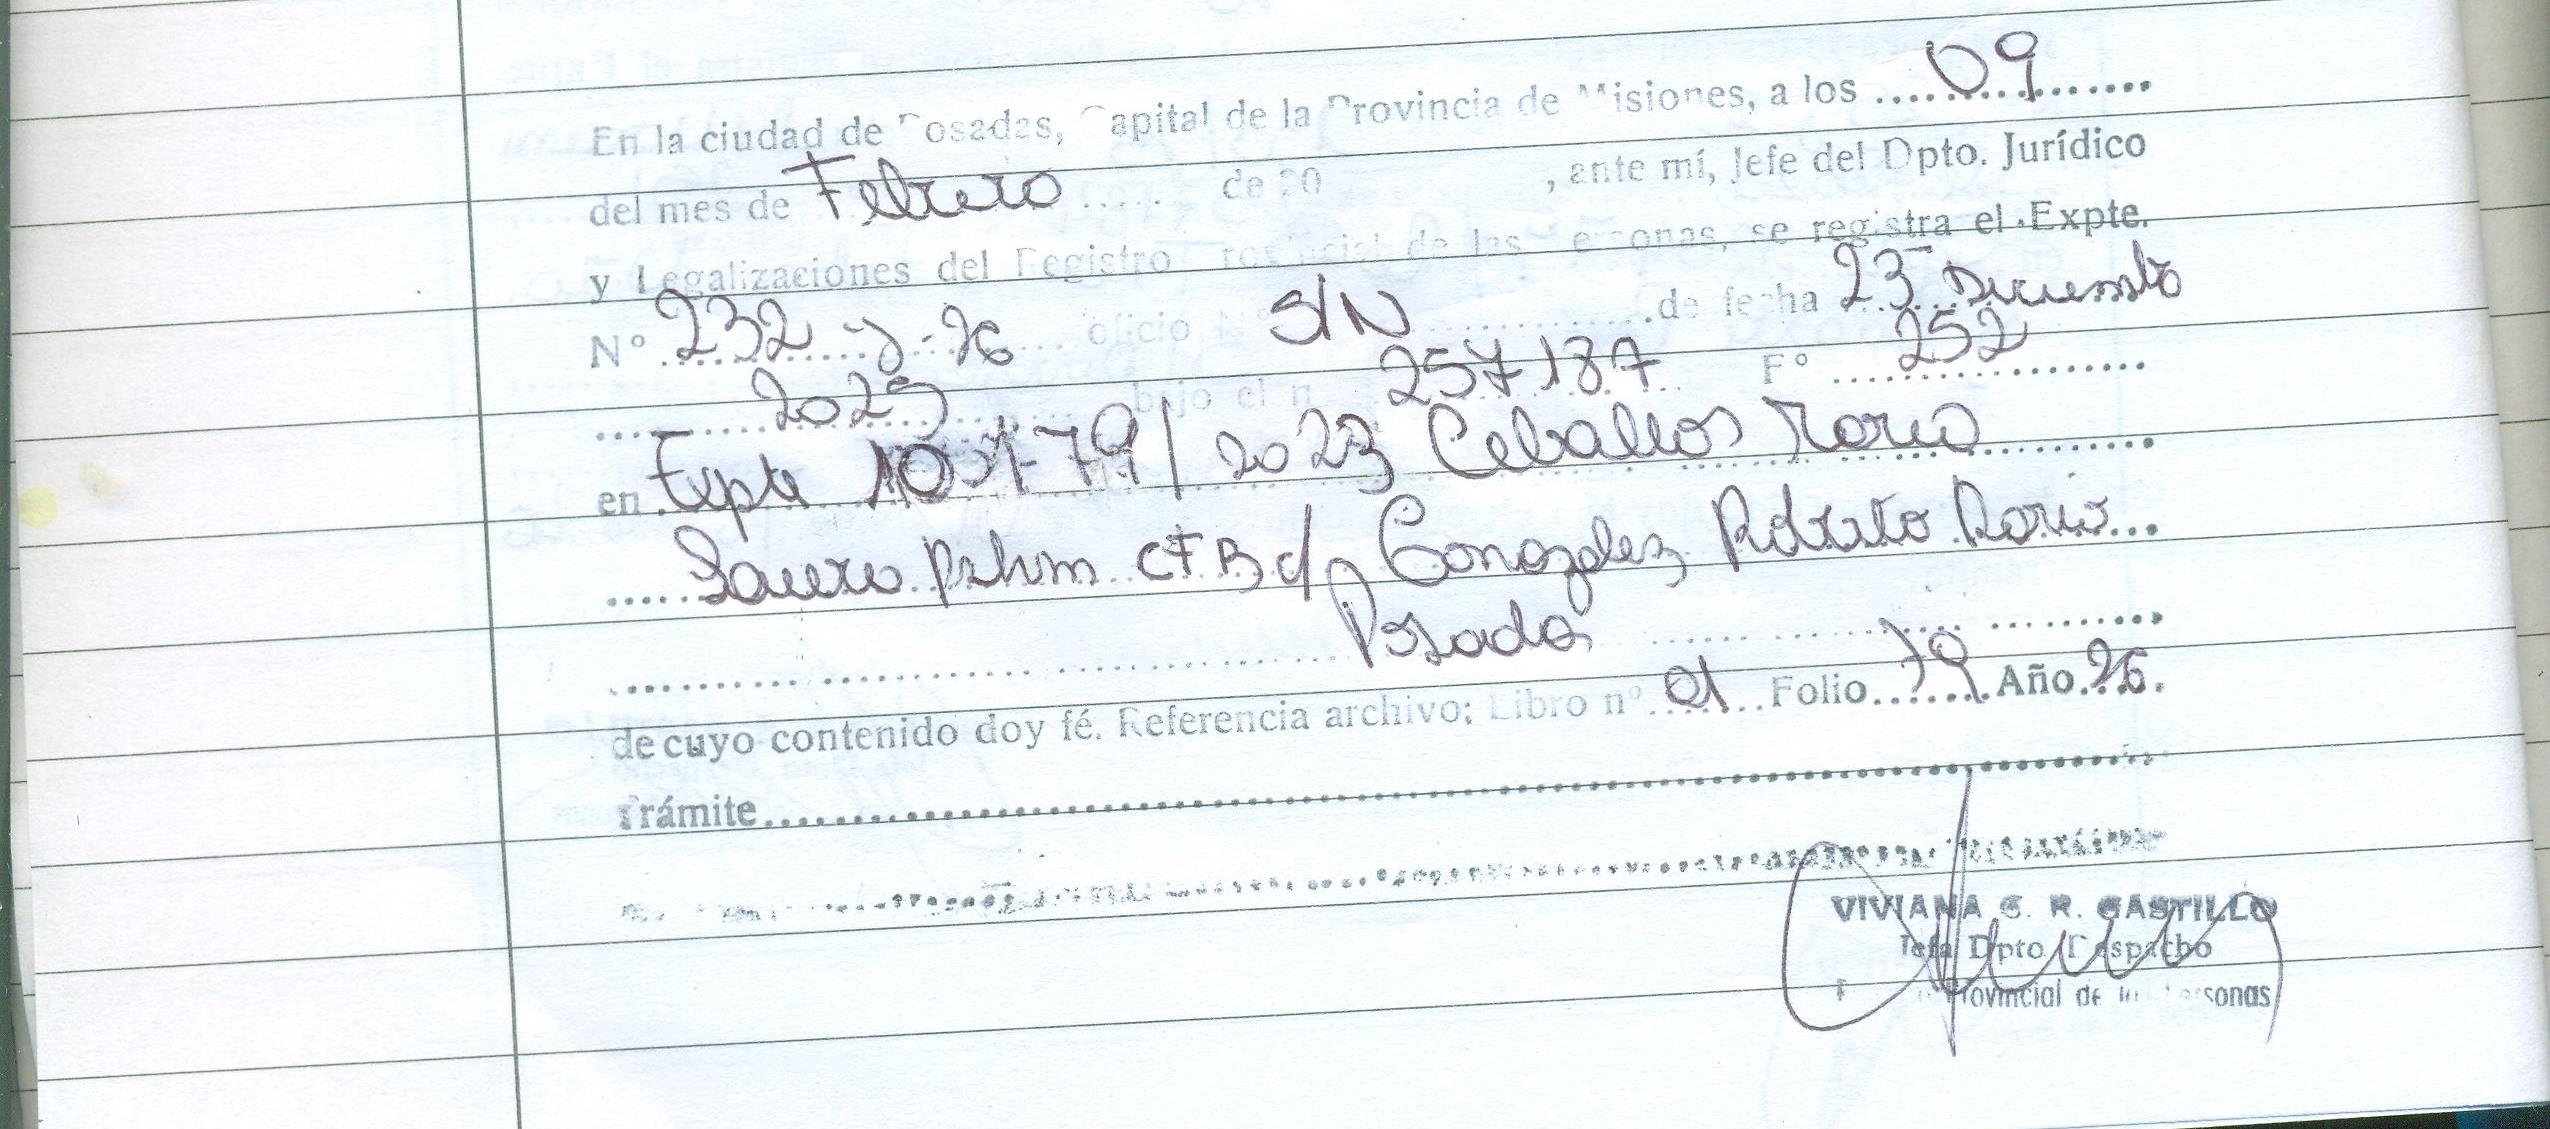 En la ciudad de Posadas, Capital de la Provincia de Misiones, a los 09
del mes de Febrero de 20 , ante mí, Jefe del Dpto. Jurídico
y Legalizaciones del Registro Provincial de las Personas, se registra el Expte.
N° 232 - J - 26 oficio N° S/N de fecha 23 Diciembre
2025 bajo el n 257187 F° 252
en Expte 179/2023 Ceballos Maria
Laura CFB c/ Gonzalez Roberto Dario
Posadas
de cuyo contenido doy fé. Referencia archivo: Libro n° 01 Folio 79 Año 26.
Trámite
VIVIANA G. R. CASTILLO
Jefa Dpto. Despacho
Provincial de las Personas